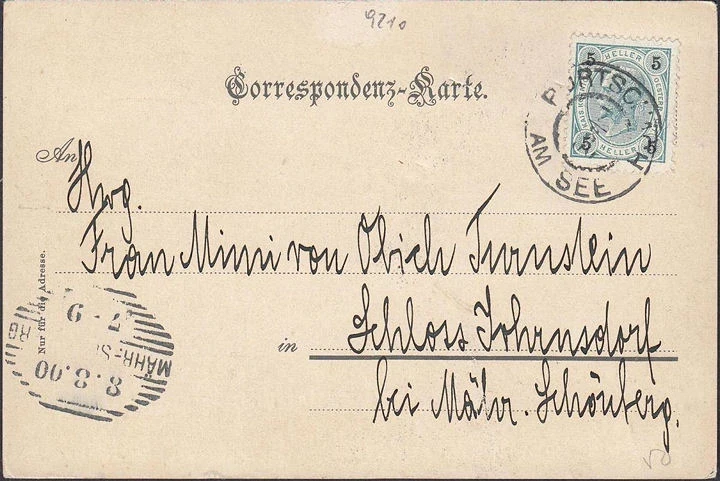 9210
Correspondenz-Karte.
5 HELLER 5
5 HELLER 5
PÖRTSCHACH
AM SEE
An
Hwg.
Frau Mimi von Obich Turnstein
in Schloss Johrnsdorf
bei Mähr. Schönberg.
Nur für die Adresse.
7-9
MÄHR.-S
8.8.00
50